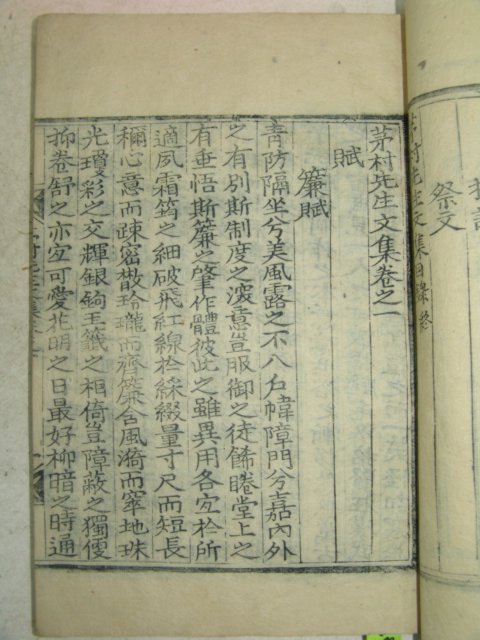 祭文
茅村先生文集目錄終
茅村先生文集卷之一
賦
簾賦
靑防隔坐兮美風露之不入戶幃障門兮嘉內外
之有別斯制度之深意豈服御之徒餙睠堂上之
有垂悟斯簾之肇作體彼此之雖異用各宜於所
適夙霜筠之細破飛紅線於綵綴量寸尺而短長
稱心意而疎密散玲瓏而齊簷含風漪而窣地珠
光瓊彩之交輝銀鉤玉籤之相倚豈障蔽之獨便
抑卷舒之亦宜可愛花明之日最好柳暗之時通